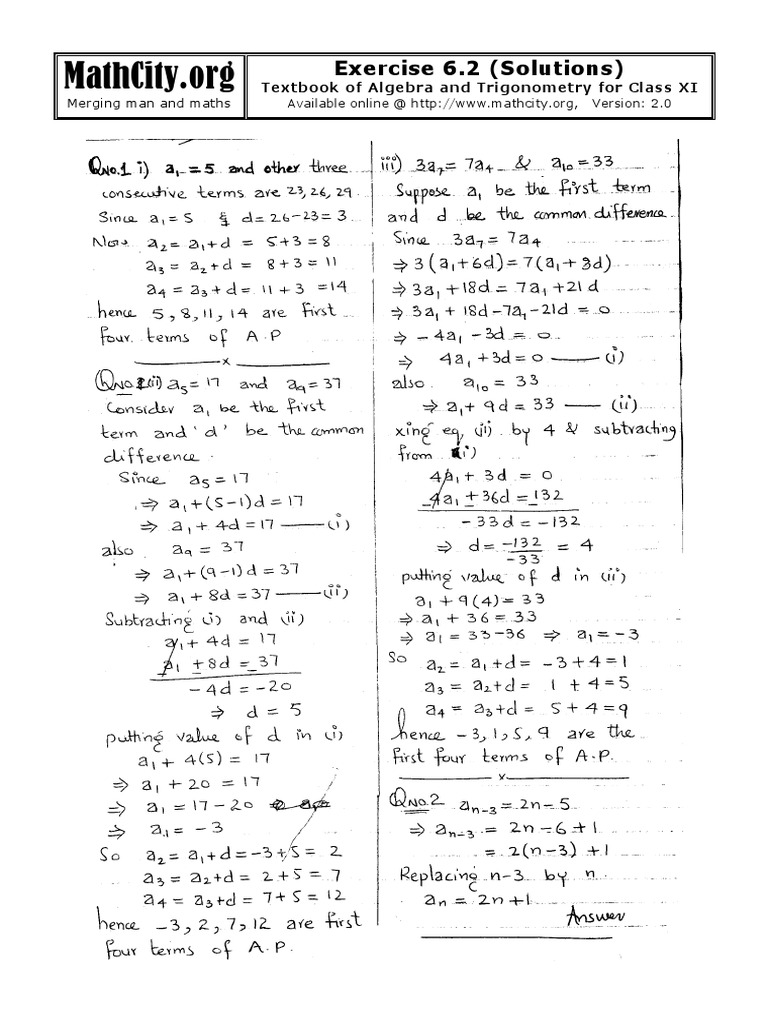 MathCity.org
Merging man and maths
Exercise 6.2 (Solutions)
Textbook of Algebra and Trigonometry for Class XI
Available online @ http://www.mathcity.org, Version: 2.0
QNO.1 i) a₁ = 5 and other three
consecutive terms are 23, 26, 29
Since a₁ = 5 & d = 26-23 = 3
Now a₂ = a₁+d = 5+3 = 8
a₃ = a₂+d = 8+3 = 11
a₄ = a₃+d = 11+3 = 14
hence 5, 8, 11, 14 are first
four terms of A.P
x
QNO. (ii) a₅ = 17 and a₉ = 37
Consider a₁ be the first
term and 'd' be the common
difference.
Since a₅ = 17
⇒ a₁+(5-1)d = 17
⇒ a₁ + 4d = 17 —— (i)
also a₉ = 37
⇒ a₁+(9-1)d = 37
⇒ a₁ + 8d = 37 —— (ii)
Subtracting (i) and (ii)
a₁ + 4d = 17
_a₁ ± 8d = _37
-4d = -20
⇒ d = 5
putting value of d in (i)
a₁ + 4(5) = 17
⇒ a₁ + 20 = 17
⇒ a₁ = 17-20
⇒ a₁ = -3
So a₂ = a₁+d = -3+5 = 2
a₃ = a₂+d = 2+5 = 7
a₄ = a₃+d = 7+5 = 12
hence -3, 2, 7, 12 are first
four terms of A.P.
iii) 3a₇ = 7a₄ & a₁₀ = 33
Suppose a₁ be the first term
and d be the common difference
Since 3a₇ = 7a₄
⇒ 3(a₁+6d) = 7(a₁+3d)
⇒ 3a₁+18d = 7a₁+21d
⇒ 3a₁ + 18d-7a₁-21d = 0
⇒ -4a₁ -3d = 0
⇒ 4a₁ +3d = 0 —— (i)
also a₁₀ = 33
⇒ a₁+ 9d = 33 —— (ii)
xing eq (ii) by 4 & subtracting
from (i)
4a₁ + 3d = 0
_4a₁ ± 36d = _132
-33d = -132
⇒ d = -132/-33 = 4
putting value of d in (ii)
a₁ + 9(4) = 33
⇒ a₁ + 36 = 33
⇒ a₁ = 33-36 ⇒ a₁ = -3
So a₂ = a₁+d = -3+4 = 1
a₃ = a₂+d = 1+4 = 5
a₄ = a₃+d = 5+4 = 9
hence -3, 1, 5, 9 are the
first four terms of A.P.
x
QNO.2 aₙ₋₃ = 2n-5
⇒ aₙ₋₃ = 2n-6+1
= 2(n-3)+1
Replacing n-3 by n
aₙ = 2n+1
Answer